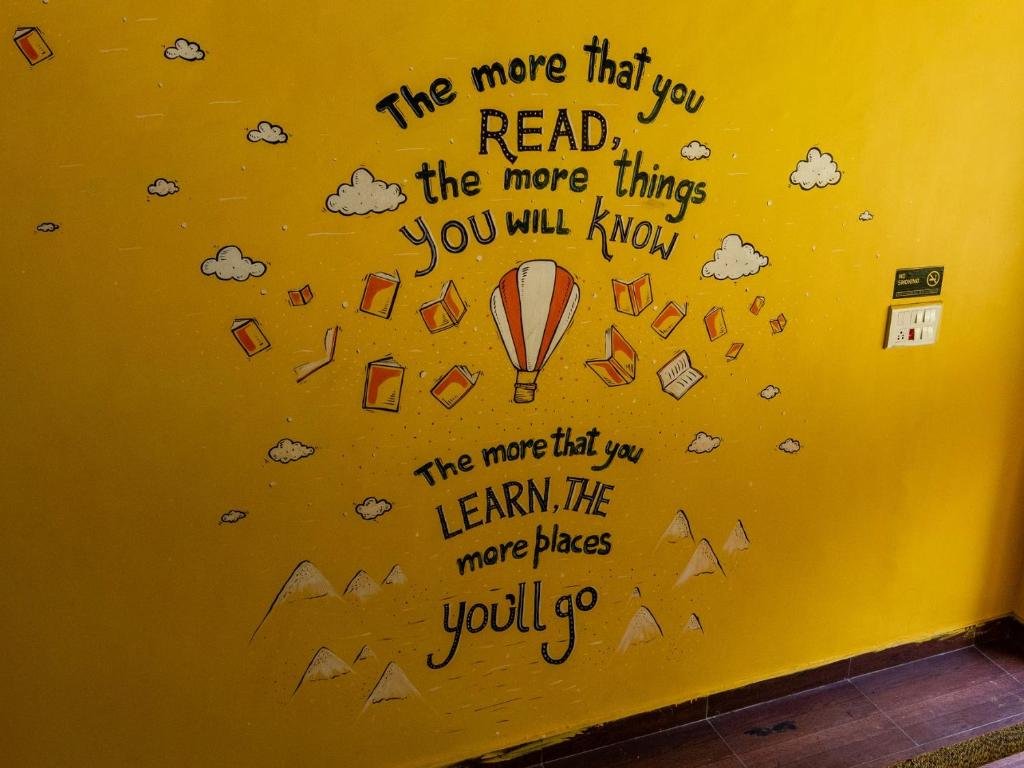 The more that you
READ,
the more things
YOU WILL KNOW
The more that you
LEARN, THE
more places
you'll go
NO
SMOKING